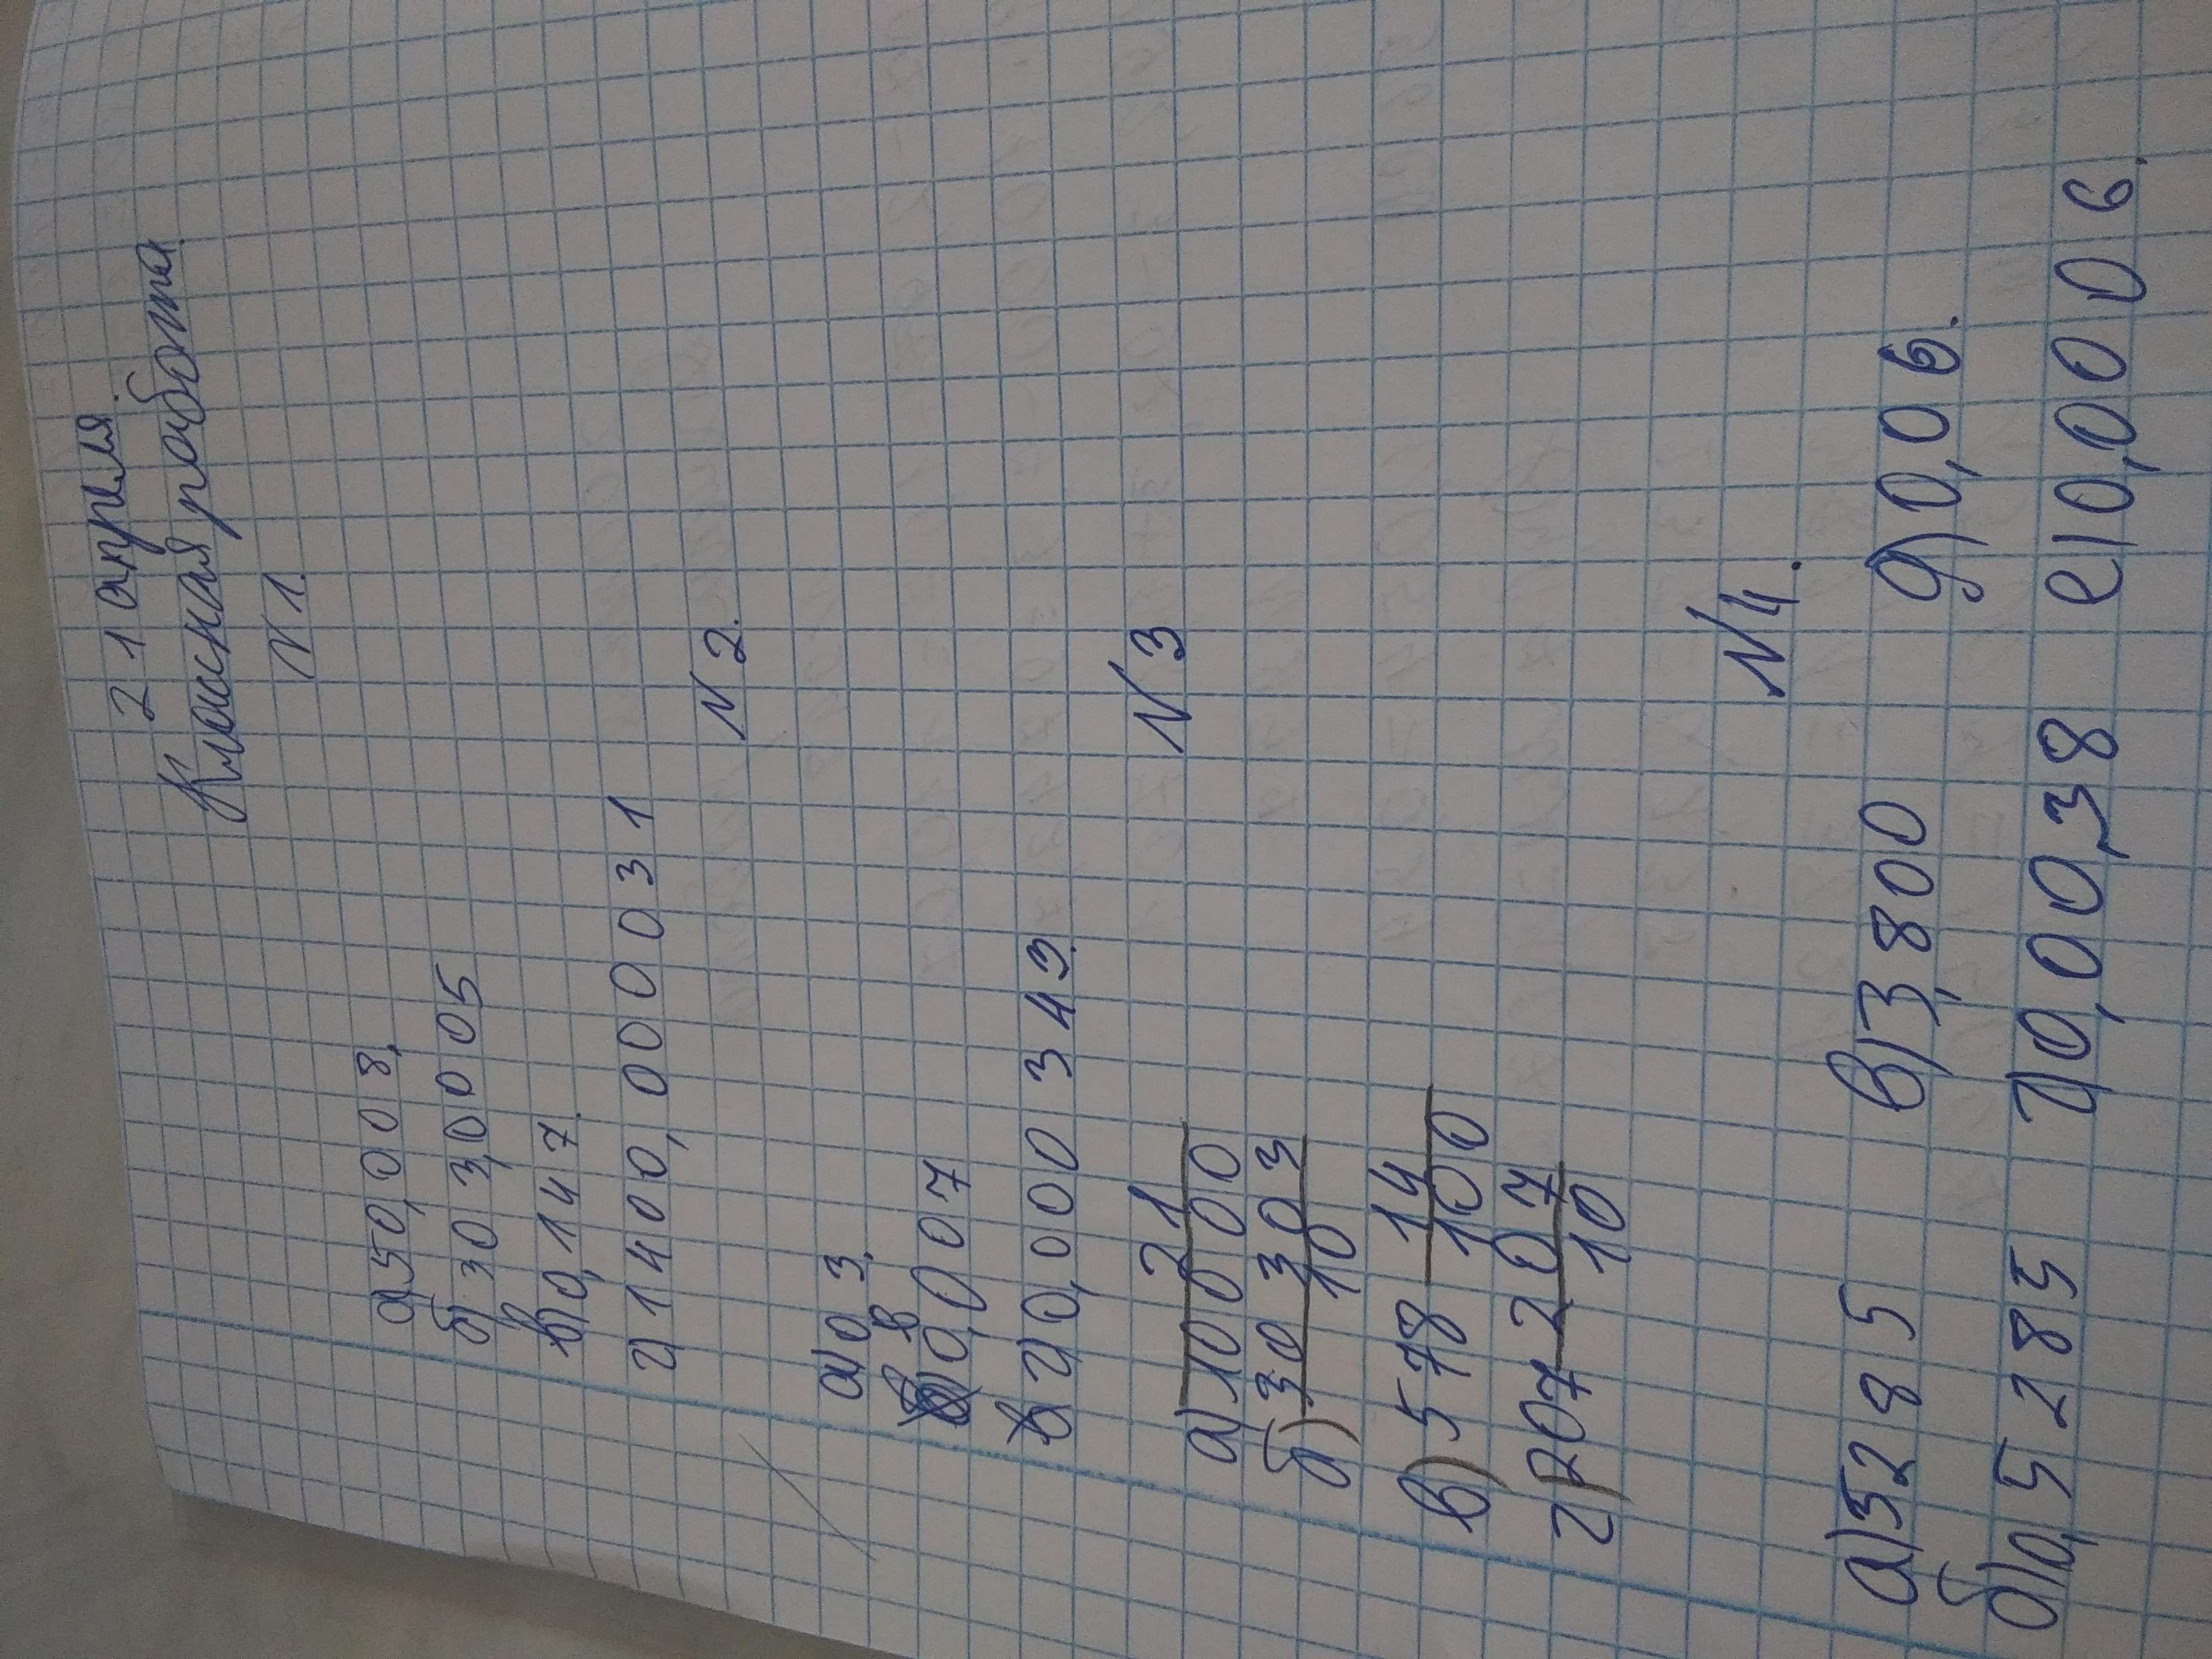 21 апреля.
Классная работа.
N 1.
а) 50,008,
б) 303,0005
в) 0,147.
г) 1400,0000031
N 2.
а) 0 3,
в
0,007
г) 0,000 349.
N 3
а) 21/10000
б) 30 303/10
в) 578 14/100
г) 207 207/10
N 4.
а) 5285 в) 3,800 д) 0,06.
б) 0,5285 г) 0,00,38 е) 0,0006.